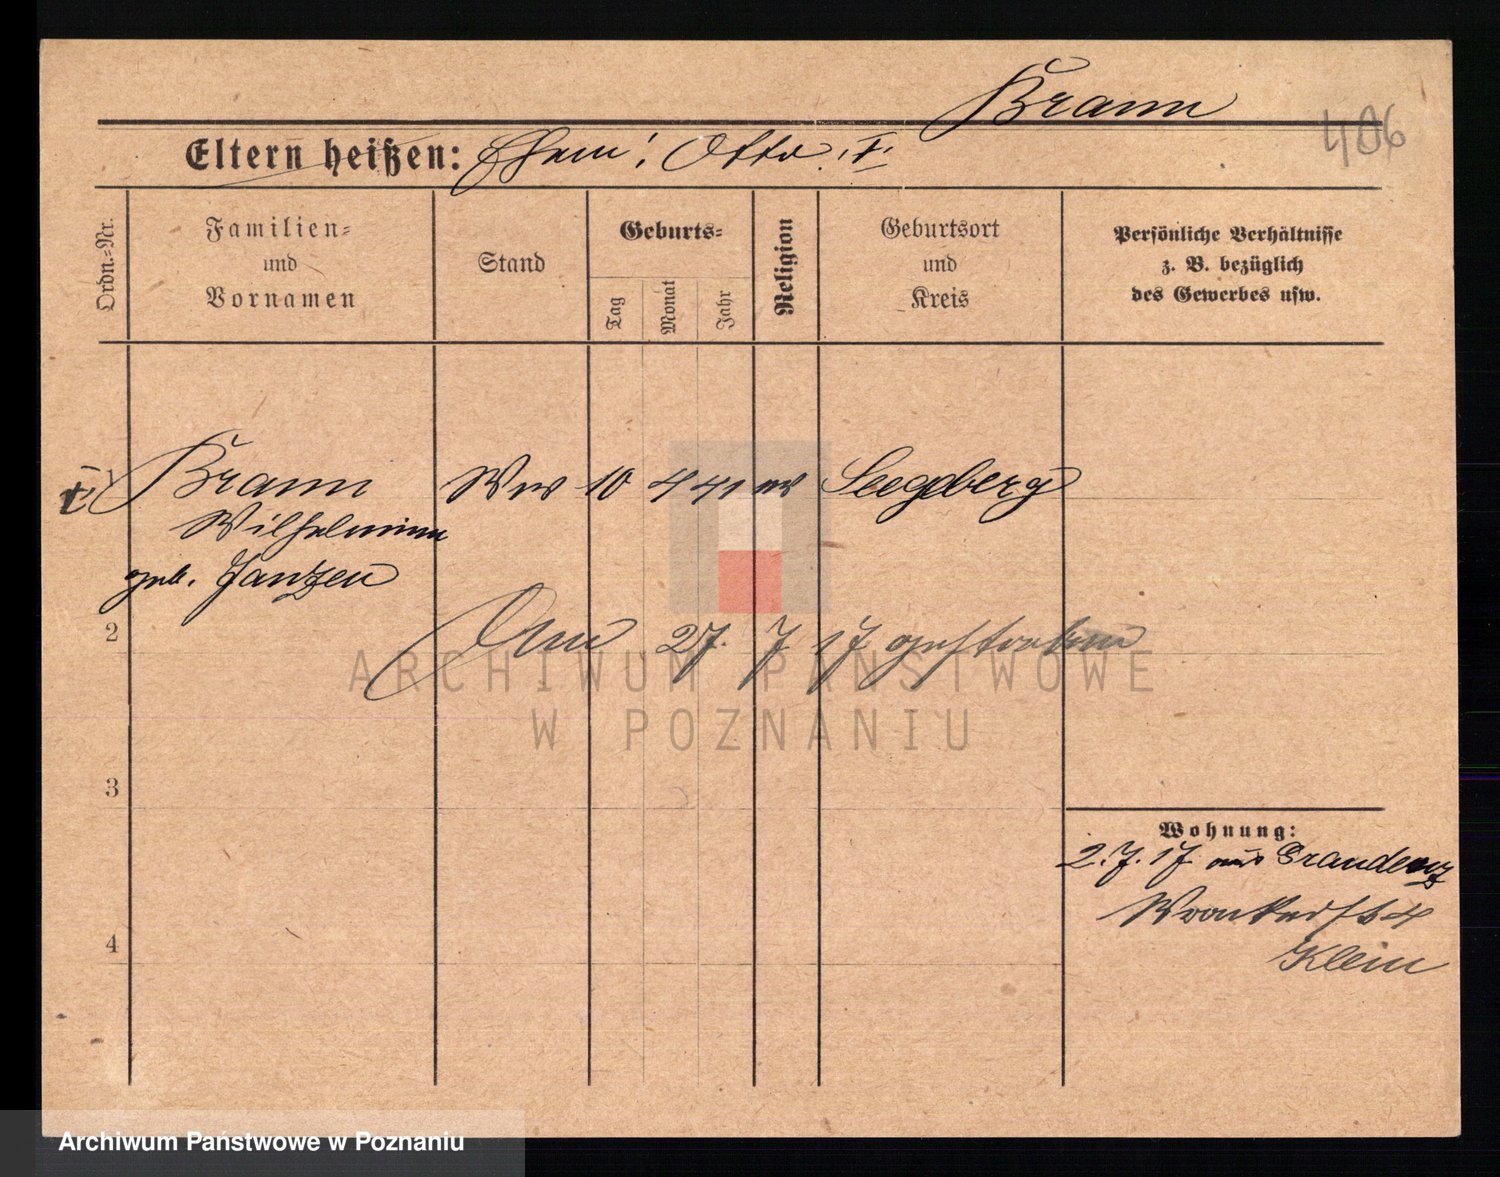 Braun
406
Eltern heißen: Ehem: Otto
Ordn.-Nr.
Familien-
und
Vornamen
Stand
Geburts-
Tag
Monat
Jahr
Religion
Geburtsort
und
Kreis
Persönliche Verhältnisse
z. B. bezüglich
des Gewerbes usw.
1 Braun Ww 10 4 41 ev Seegberg
Wilhelmine
geb. Janzen
2
Am 27. 7 17 gestorben
3
Wohnung:
2. 7. 17 aus Graudenz
Wronkerstr 4
Klein
4
ARCHIWUM PAŃSTWOWE
W POZNANIU
Archiwum Państwowe w Poznaniu